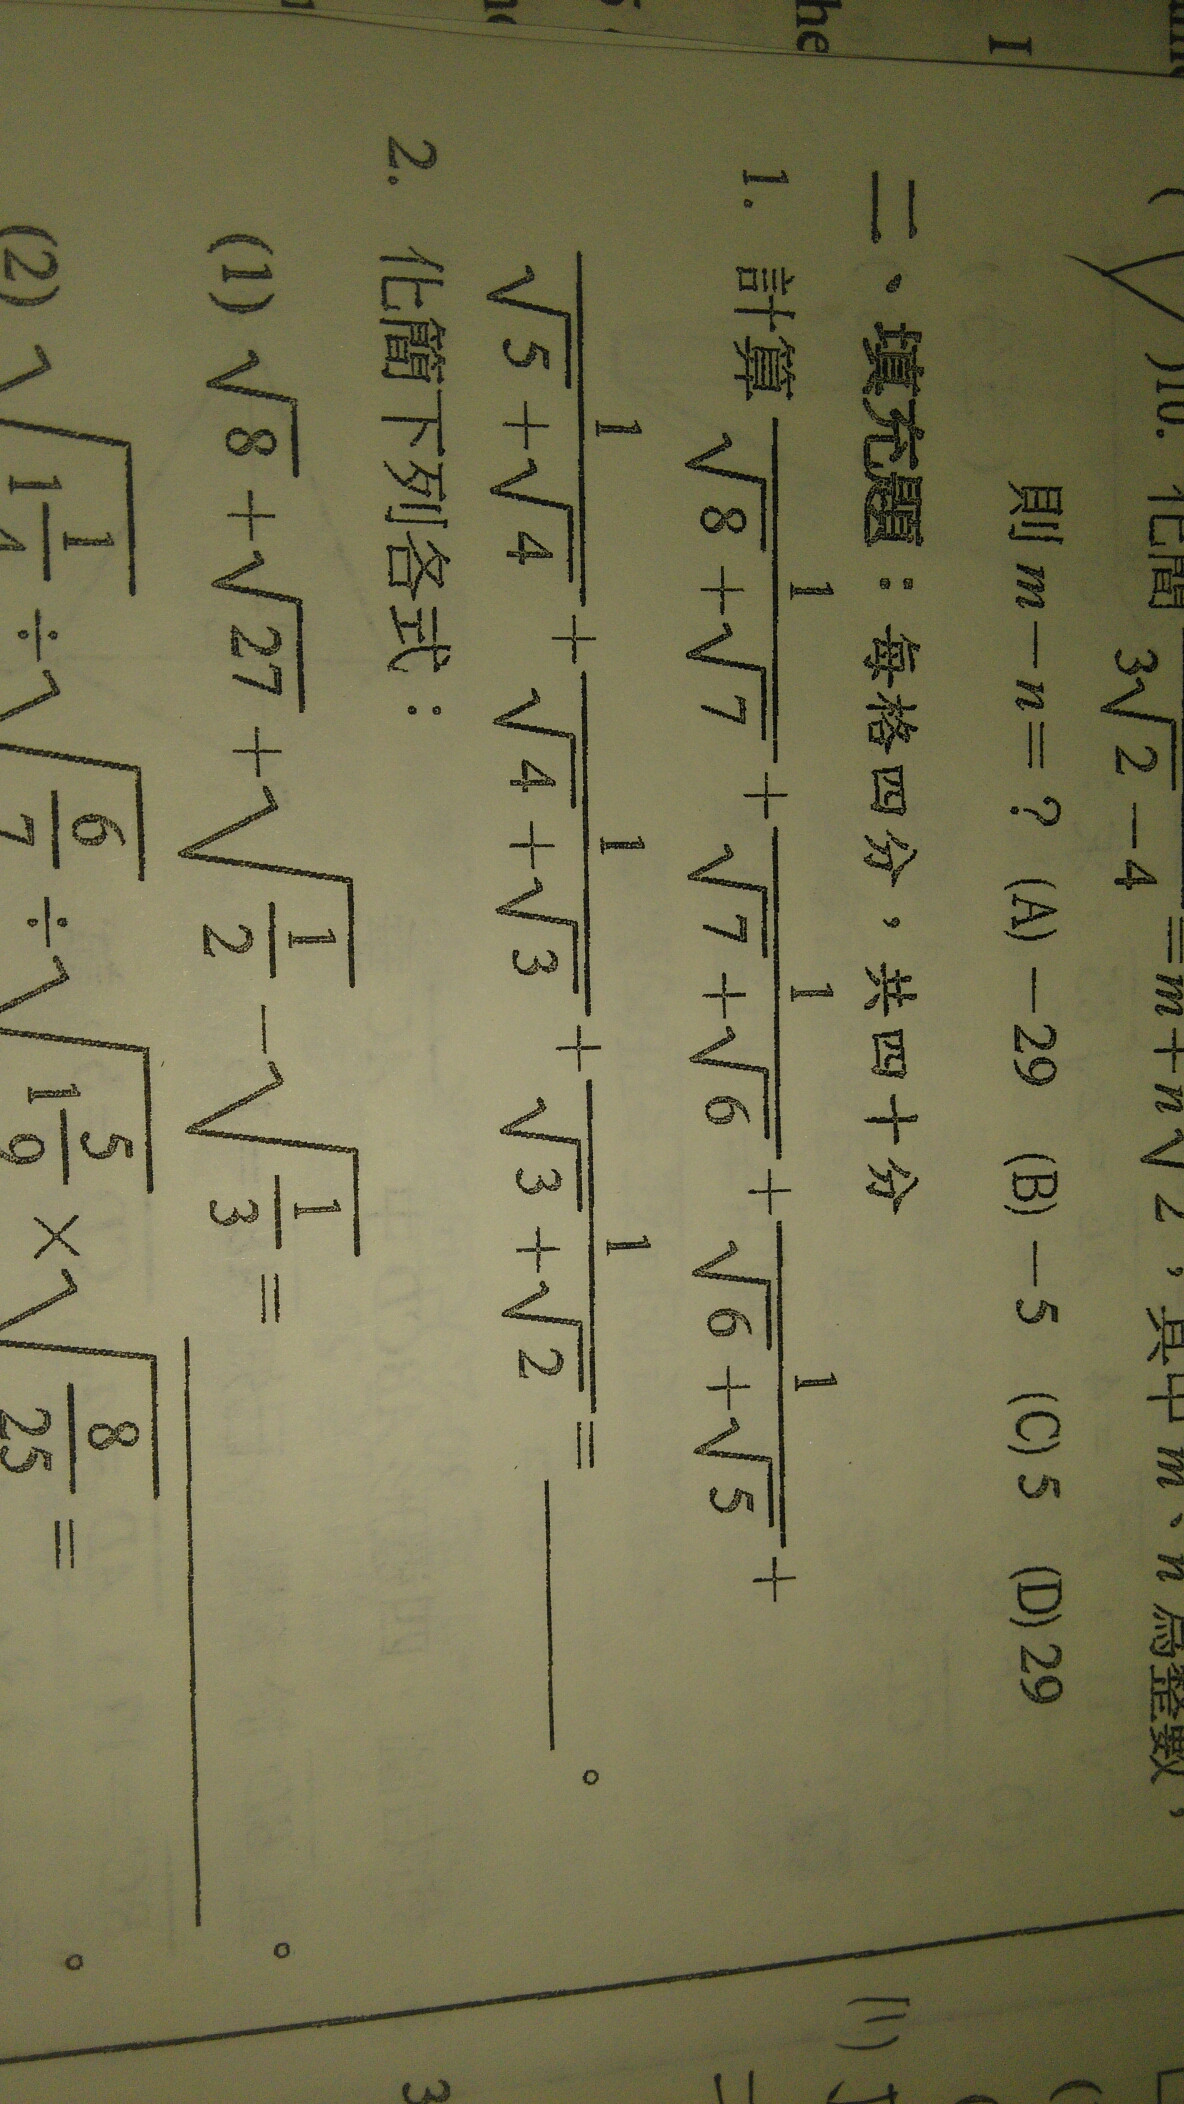 )10. 化簡 3√2 − 4 = m + n√2，其中 m、n 為整數，
則 m − n = ？ (A) −29 (B) −5 (C) 5 (D) 29
二、填充題：每格四分，共四十分
1. 計算 1/(√8 + √7) + 1/(√7 + √6) + 1/(√6 + √5) +
1/(√5 + √4) + 1/(√4 + √3) + 1/(√3 + √2) = ______。
2. 化簡下列各式：
(1) √8 + √27 + √(1/2) − √(1/3) = ______。
(2) √(1 1/4) ÷ √(6/7) ÷ √(1 5/9) × √(8/25) =
。